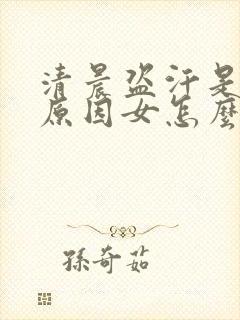 清晨盗汗是
原因女怎麼
孫奇茹